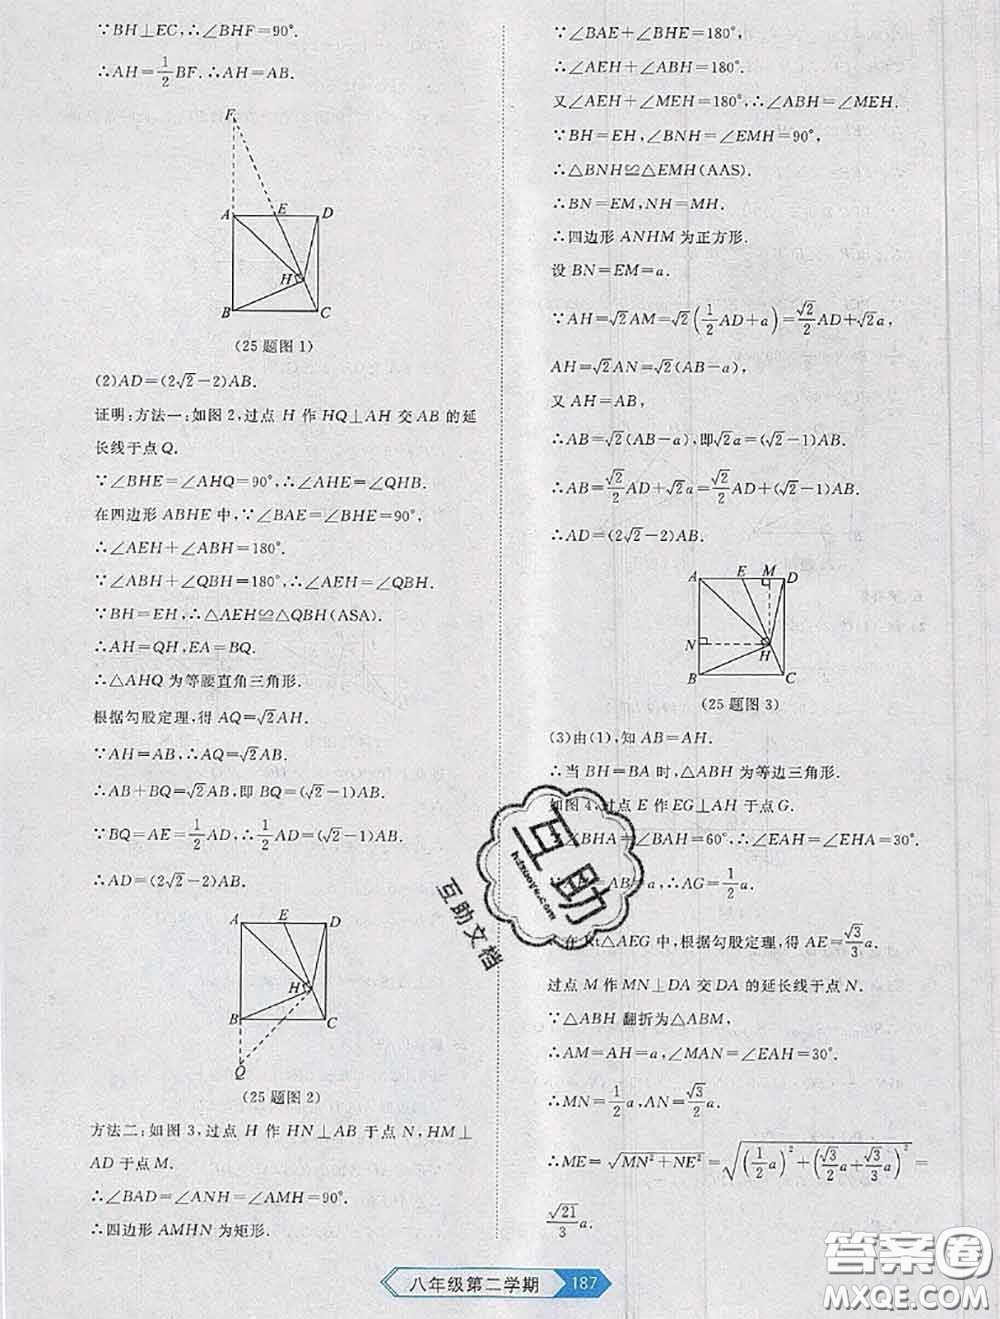 ∵BH⊥EC,∴∠BHF=90°.
∴AH=1/2BF.∴AH=AB.
F
A E D
H
B C
(25题图1)
(2)AD=(2√2-2)AB.
证明:方法一:如图2,过点 H 作 HQ⊥AH 交 AB 的延
长线于点Q.
∵∠BHE=∠AHQ=90°,∴∠AHE=∠QHB.
在四边形 ABHE 中,∵∠BAE=∠BHE=90°,
∴∠AEH+∠ABH=180°.
∵∠ABH+∠QBH=180°,∴∠AEH=∠QBH.
∵BH=EH,∴△AEH≌△QBH(ASA).
∴AH=QH,EA=BQ.
∴△AHQ 为等腰直角三角形.
根据勾股定理,得 AQ=√2AH.
∵AH=AB,∴AQ=√2AB.
∴AB+BQ=√2AB,即 BQ=(√2-1)AB.
∵BQ=AE=1/2AD,∴1/2AD=(√2-1)AB.
∴AD=(2√2-2)AB.
A E D
H
B C
Q
(25题图2)
方法二:如图3,过点 H 作 HN⊥AB 于点 N,HM⊥
AD于点M.
∴∠BAD=∠ANH=∠AMH=90°.
∴四边形 AMHN 为矩形.
∵∠BAE+∠BHE=180°,
∴∠AEH+∠ABH=180°.
又∠AEH+∠MEH=180°,∴∠ABH=∠MEH.
∵BH=EH,∠BNH=∠EMH=90°,
∴△BNH≌△EMH(AAS).
∴BN=EM,NH=MH.
∴四边形 ANHM 为正方形.
设 BN=EM=a.
∵AH=√2AM=√2(1/2AD+a)=√2/2AD+√2a,
AH=√2AN=√2(AB-a),
又 AH=AB,
∴AB=√2(AB-a),即√2a=(√2-1)AB.
∴AB=√2/2AD+√2a=√2/2AD+(√2-1)AB.
∴AD=(2√2-2)AB.
A E M D
N H
B C
(25题图3)
(3)由(1),知 AB=AH.
∴当 BH=BA 时,△ABH 为等边三角形.
如图4,过点 E 作 EG⊥AH 于点 G.
∠BHA=∠BAH=60°,∴∠EAH=∠EHA=30°.
AB=a,∴AG=1/2a.
在Rt△AEG 中,根据勾股定理,得 AE=√3/3a.
过点 M 作 MN⊥DA 交 DA 的延长线于点 N.
∵△ABH 翻折为△ABM,
∴AM=AH=a,∠MAN=∠EAH=30°.
∴MN=1/2a,AN=√3/2a.
∴ME=√(MN²+NE²)=√((1/2a)²+(√3/2a+√3/3a)²)=
√21/3a.
互助
互助文档
八年级第二学期 187
答案圈
MXQE.COM